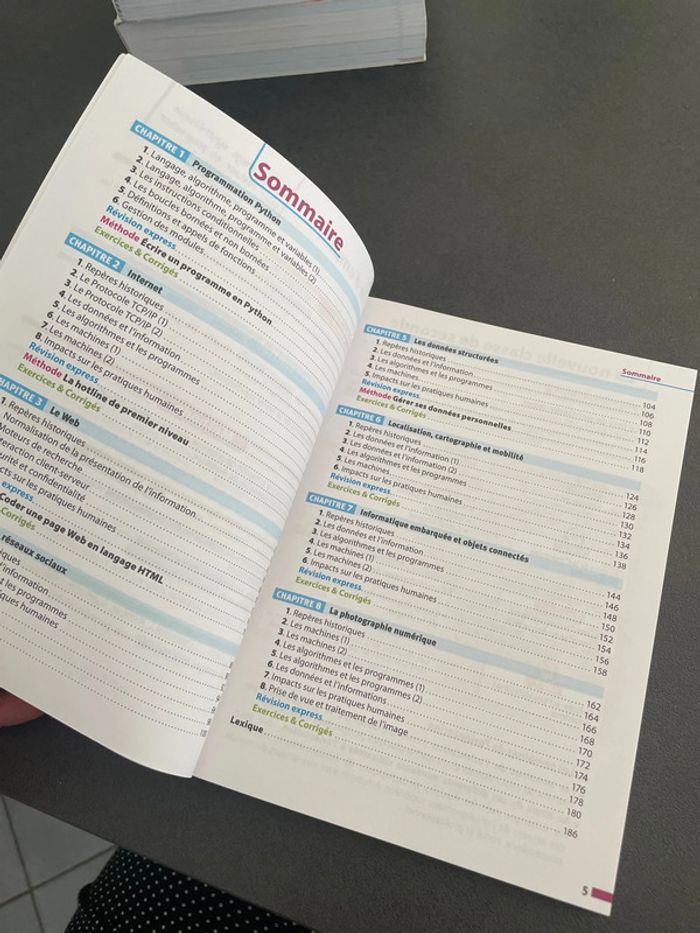 Sommaire
CHAPITRE 1 Programmation Python
1. Langage, algorithme, programme et variables (1)
2. Langage, algorithme, programme et variables (2)
3. Les instructions conditionnelles
4. Les boucles bornées et non bornées
5. Définitions et appels de fonctions
6. Gestion des modules
Révision express
Méthode Écrire un programme en Python
Exercices & Corrigés
CHAPITRE 2 Internet
1. Repères historiques
2. Le Protocole TCP/IP (1)
3. Le Protocole TCP/IP (2)
4. Les données et l'information
5. Les algorithmes et les programmes
6. Les machines (1)
7. Les machines (2)
8. Impacts sur les pratiques humaines
Révision express
Méthode La hotline de premier niveau
Exercices & Corrigés
CHAPITRE 3 Le Web
1. Repères historiques
Normalisation de la présentation de l'information
Moteurs de recherche
client-serveur
et confidentialité
sur les pratiques humaines
express
Coder une page Web en langage HTML
Corrigés
réseaux sociaux
l'information
les programmes
humaines
Sommaire
CHAPITRE 5 Les données structurées
1. Repères historiques 104
2. Les données et l'information 106
3. Les algorithmes et les programmes 108
4. Les machines 110
5. Impacts sur les pratiques humaines 112
Révision express 114
Méthode Gérer ses données personnelles 116
Exercices & Corrigés 118
CHAPITRE 6 Localisation, cartographie et mobilité
1. Repères historiques 124
2. Les données et l'information (1) 126
3. Les données et l'information (2) 128
4. Les algorithmes et les programmes 130
5. Les machines 132
6. Impacts sur les pratiques humaines 134
Révision express 136
Exercices & Corrigés 138
CHAPITRE 7 Informatique embarquée et objets connectés
1. Repères historiques 144
2. Les données et l'information 146
3. Les algorithmes et les programmes 148
4. Les machines (1) 150
5. Les machines (2) 152
6. Impacts sur les pratiques humaines 154
Révision express 156
Exercices & Corrigés 158
CHAPITRE 8 La photographie numérique
1. Repères historiques 162
2. Les machines (1) 164
3. Les machines (2) 166
4. Les algorithmes et les programmes (1) 168
5. Les algorithmes et les programmes (2) 170
6. Les données et l'informations 172
7. Impacts sur les pratiques humaines 174
8. Prise de vue et traitement de l'image 176
Révision express 178
Exercices & Corrigés 180
Lexique 186
5